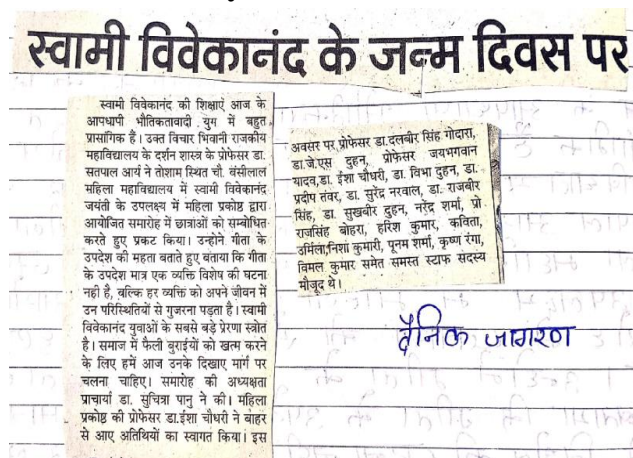 स्वामी विवेकानंद के जन्म दिवस पर
स्वामी विवेकानंद की शिक्षाएं आज के
आपधापी भौतिकतावादी युग में बहुत
प्रासांगिक है। उक्त विचार भिवानी राजकीय
महाविद्यालय के दर्शन शास्त्र के प्रोफेसर डा.
सतपाल आर्य ने तोशाम स्थित चौ. बंसीलाल
महिला महाविद्यालय में स्वामी विवेकानंद
जयंती के उपलक्ष्य में महिला प्रकोष्ठ द्वारा
आयोजित समारोह में छात्राओं को सम्बोधित
करते हुए प्रकट किया। उन्होने गीता के
उपदेश की महता बताते हुए बताया कि गीता
के उपदेश मात्र एक व्यक्ति विशेष की घटना
नही है, बल्कि हर व्यक्ति को अपने जीवन में
उन परिस्थितियों से गुजरना पड़ता है। स्वामी
विवेकानंद युवाओं के सबसे बड़े प्रेरणा स्त्रोत
है। समाज में फैली बुराईयों को खत्म करने
के लिए हमें आज उनके दिखाए मार्ग पर
चलना चाहिए। समारोह की अध्यक्षता
प्राचार्या डा. सुचित्रा पानु ने की। महिला
प्रकोष्ठ की प्रोफेसर डा.ईशा चौधरी ने बाहर
से आए अतिथियों का स्वागत किया। इस
अवसर पर प्रोफेसर डा.दलबीर सिंह गोदारा,
डा.जे.एस दुहन, प्रोफेसर जयभगवान
यादव,डा. ईशा चौधरी, डा. विभा दुहन, डा.
प्रदीप तंवर, डा. सुरेंद्र नरवाल, डा. राजबीर
सिंह, डा. सुखबीर दुहन, नरेंद्र शर्मा, प्रो
राजसिंह बोहरा, हरिश कुमार, कविता,
उर्मिला,निशा कुमारी, पूनम शर्मा, कृष्ण रंगा,
विमल कुमार समेत समस्त स्टाफ सदस्य
मौजूद थे।
दैनिक जागरण